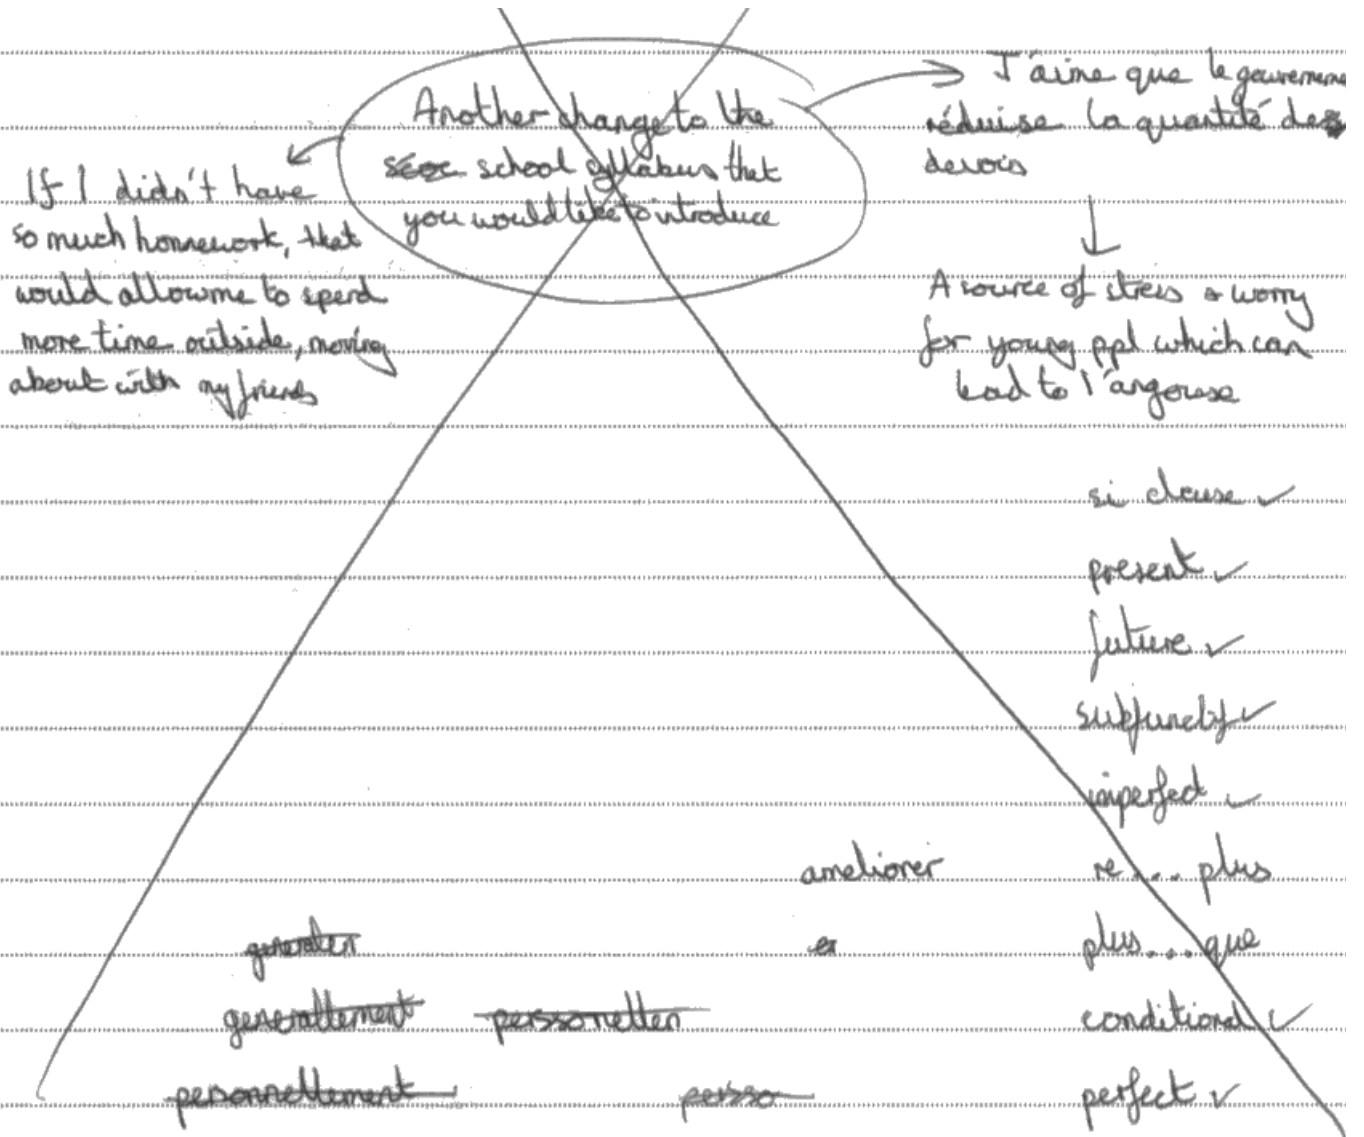 Another change to the
school syllabus that
you would like to introduce
If I didn't have
so much homework, that
would allow me to spend
more time outside, moving
about with my friends
J'aime que le gouverneme
réduise la quantité des
devois
A source of stress & worry
for young ppl which can
lead to l'angoisse
si clause ✓
present ✓
future ✓
subjunctif ✓
imperfect ✓
ameliorer
ne ... plus
plus ... que
generallement
personnellement
perso
conditional ✓
perfect ✓